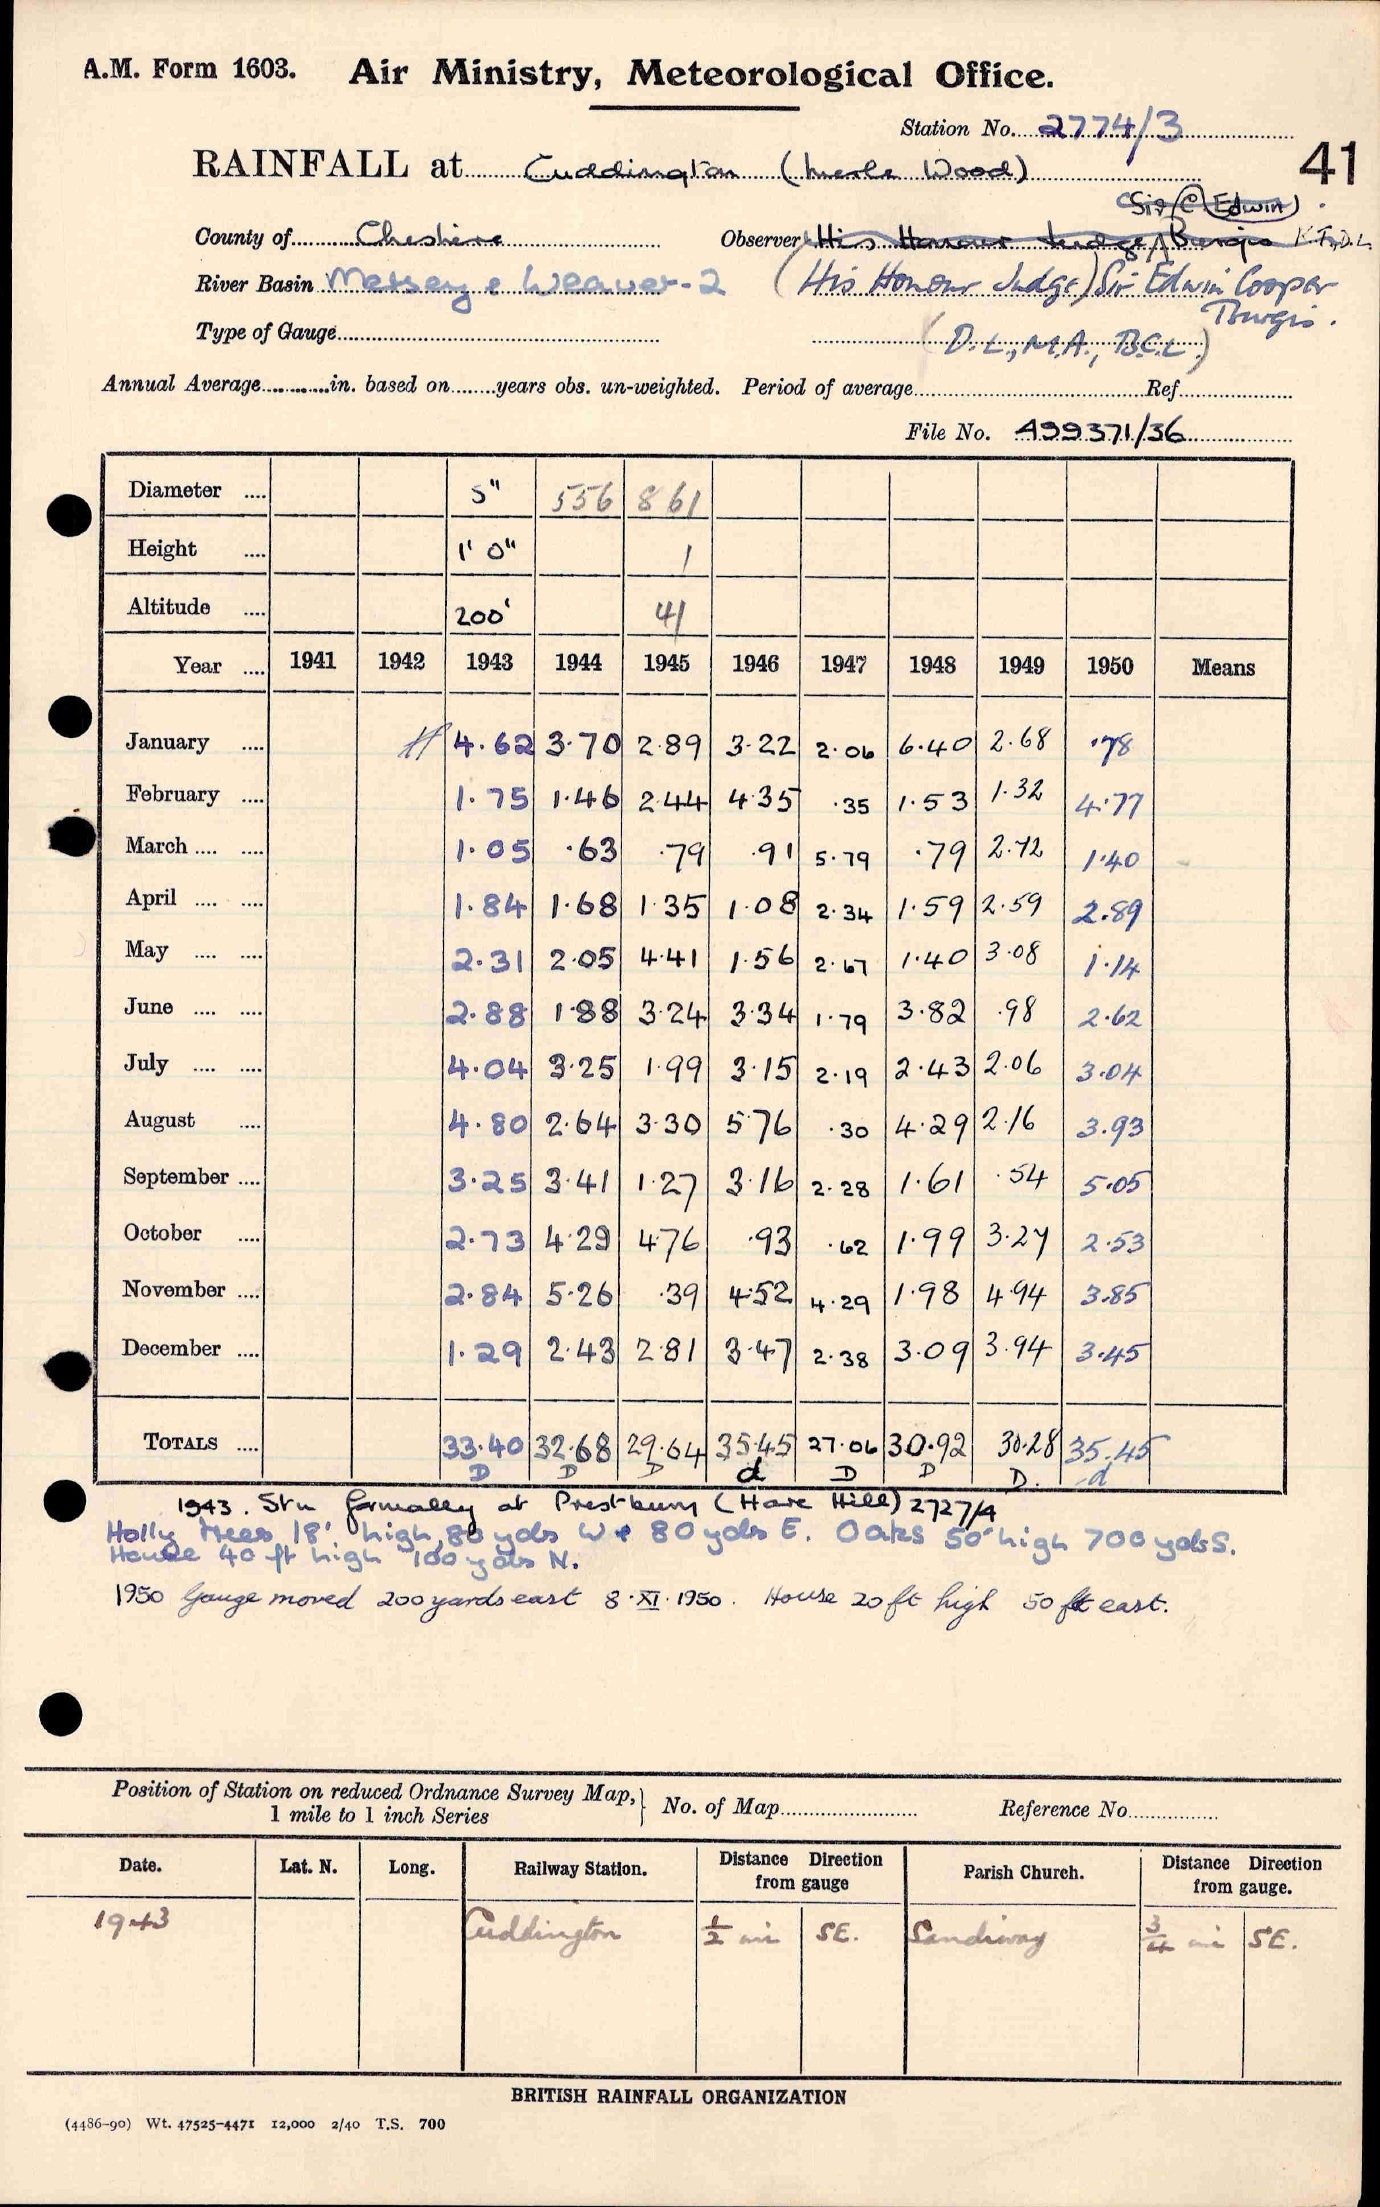 A.M. Form 1603. Air Ministry, Meteorological Office.
Station No. 2774/3
41
RAINFALL at Cuddington (Merle Wood)
(Sir C Edwin)
County of Cheshire Observer His Honour Judge Burgis KT., D.L.
River Basin Mersey & Weaver-2 (His Honour Judge) Sir Edwin Cooper
Burgis.
Type of Gauge (D.L., M.A., B.C.L.)
Annual Average in. based on years obs. un-weighted. Period of average Ref
File No. A99371/36
Diameter 5" 556 861
Height 1' 0" 1
Altitude 200' 41
Year 1941 1942 1943 1944 1945 1946 1947 1948 1949 1950 Means
January 4.62 3.70 2.89 3.22 2.06 6.40 2.68 .78
February 1.75 1.46 2.44 4.35 .35 1.53 1.32 4.77
March 1.05 .63 .79 .91 5.79 .79 2.72 1.40
April 1.84 1.68 1.35 1.08 2.34 1.59 2.59 2.89
May 2.31 2.05 4.41 1.56 2.67 1.40 3.08 1.14
June 2.88 1.88 3.24 3.34 1.79 3.82 .98 2.62
July 4.04 3.25 1.99 3.15 2.19 2.43 2.06 3.04
August 4.80 2.64 3.30 5.76 .30 4.29 2.16 3.93
September 3.25 3.41 1.27 3.16 2.28 1.61 .54 5.05
October 2.73 4.29 4.76 .93 .62 1.99 3.27 2.53
November 2.84 5.26 .39 4.52 4.29 1.98 4.94 3.85
December 1.29 2.43 2.81 3.47 2.38 3.09 3.94 3.45
TOTALS 33.40 32.68 29.64 35.45 27.06 30.92 30.28 35.45
D D D d D D D. d
1943. Stn formally at Prestbury (Hare Hill) 2727/4
Holly Trees 18' high, 80 yds W & 80 yds E. Oaks 50' high 700 yds S.
House 40 ft high 100 yds N.
1950 Gauge moved 200 yards east 8.XI.1950. House 20 ft high 50 ft east.
Position of Station on reduced Ordnance Survey Map, No. of Map Reference No.
1 mile to 1 inch Series
Date. Lat. N. Long. Railway Station. Distance Direction from gauge Parish Church. Distance Direction from gauge.
1943 Cuddington 1/2 mi SE. Sandiway 3/4 mi SE.
BRITISH RAINFALL ORGANIZATION
(4486-90) Wt. 47525-4471 12,000 2/40 T.S. 700